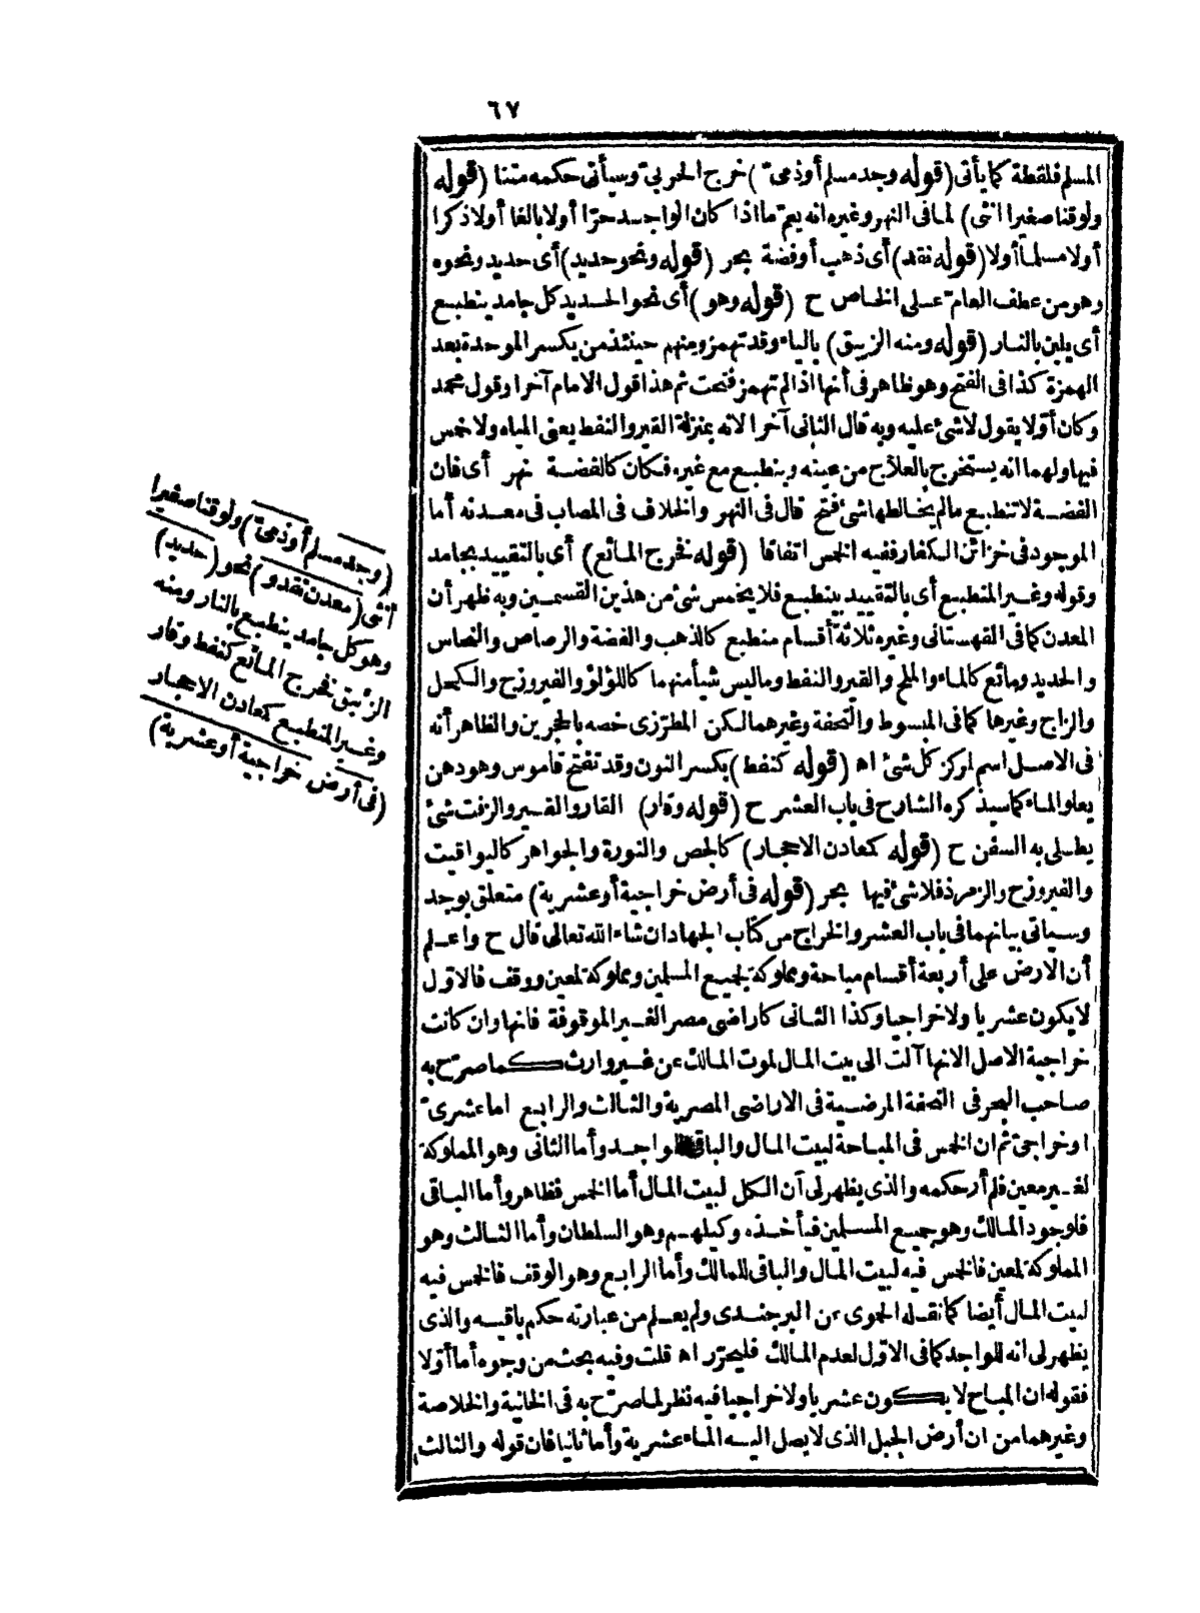 ٦٧
المسلم فلقطة كما يأتى (قوله وجد مسلم أوذمىّ) خرج الحربىّ وسيأتى حكمه متنا (قوله
ولو قنا صغيرا انثى) لما فى النهر وغيره انه يعمّ ما اذا كان الواجد حرّا أولا بالغا أولا ذكرا
أولا مسلما أولا (قوله نقد) أى ذهب أوفضة بحر (قوله ونحو حديد) أى حديد ونحوه
وهو من عطف العامّ على الخاص ح (قوله وهو) أى نحو الحديد كل جامد ينطبع
أى يلين بالنار (قوله ومنه الزيبق) بالياء وقد تهمز ومنهم حينئذ من يكسر الموحدة بعد
الهمزة كذا فى الفتح وهو ظاهر فى أنها اذا لم تهمز فتحت ثم هذا قول الامام آخرا وقول محمد
وكان أوّلا يقول لاشئ عليه وبه قال الثانى آخرا لانه بمنزلة القير والنفط يعنى المياه ولا خمس
فيها ولهما انه يستخرج بالعلاج من عينه وينطبع مع غيره فكان كالفضة نهر أى فان
الفضة لا تنطبع مالم يخالطها شئ فتح قال فى النهر والخلاف فى المصاب فى معدنه أما
الموجود فى خزائن الكفار ففيه الخمس اتفاقا (قوله فخرج المائع) أى بالتقييد بجامد
وقوله وغير المنطبع أى بالتقييد بينطبع فلا يخمس شئ من هذين القسمين وبه ظهر أن
المعدن كما فى القهستانى وغيره ثلاثة أقسام منطبع كالذهب والفضة والرصاص والنحاس
والحديد ومائع كالماء والملح والقير والنفط وماليس شيأ منهما كاللؤلؤ والفيروزج والكحل
والزاج وغيرها كما فى المبسوط والتحفة وغيرهما لكن المطرّزى خصه بالحجرين والظاهر أنه
فى الاصل اسم لمركز كل شئ اه (قوله كنفط) بكسر النون وقد تفتح قاموس وهو دهن
يعلو الماء كما سيذكره الشارح فى باب العشر ح (قوله وقار) القار والقير والزفت شئ
يطلى به السفن ح (قوله كمعادن الاحجار) كالجص والنورة والجواهر كاليواقيت
والفيروزج والزمرذ فلا شئ فيها بحر (قوله فى أرض خراجية أوعشرية) متعلق بوجد
وسيأتى بيانهما فى باب العشر والخراج من كتاب الجهاد ان شاء الله تعالى قال ح واعلم
أن الارض على أربعة أقسام مباحة ومملوكة لجميع المسلمين ومملوكة لمعين ووقف فالاوّل
لا يكون عشريا ولا خراجيا وكذا الثانى كاراضى مصر الغير الموقوفة فانها وان كانت
خراجية الاصل الا انها آلت الى بيت المال لموت المالك من غير وارث كما صرّح به
صاحب البحر فى التحفة المرضية فى الاراضى المصرية والثالث والرابع اما عشرىّ
او خراجىّ ثم ان الخمس فى المباحة لبيت المال والباقى للواجد وأما الثانى وهو المملوكة
لغير معين فلم أر حكمه والذى يظهر لى أن الكل لبيت المال أما الخمس فظاهر وأما الباقى
فلوجود المالك وهو جميع المسلمين فيأخذه وكيلهم وهو السلطان وأما الثالث وهو
المملوكة لمعين فالخمس فيه لبيت المال والباقى للمالك وأما الرابع وهو الوقف فالخمس فيه
لبيت المال أيضا كما نقله الحموى عن البرجندى ولم يعلم من عبارته حكم باقيه والذى
يظهر لى انه للواجد كما فى الاوّل لعدم المالك فليحرّر اه قلت وفيه بحث من وجوه أما أوّلا
فقوله ان المباح لا يكون عشريا ولا خراجيا فيه نظر لما صرّح به فى الخانية والخلاصة
وغيرهما من ان أرض الجبل الذى لا يصل اليه الماء عشرية وأما ثانيا فان قوله والثالث
(وجد مسلم أوذمىّ) ولو قنا صغيرا
انثى (معدن نقد و) نحو (حديد)
وهو كل جامد ينطبع بالنار ومنه
الزئبق فخرج المائع كنفط وقار
وغير المنطبع كمعادن الاحجار
(فى أرض خراجية أوعشرية)